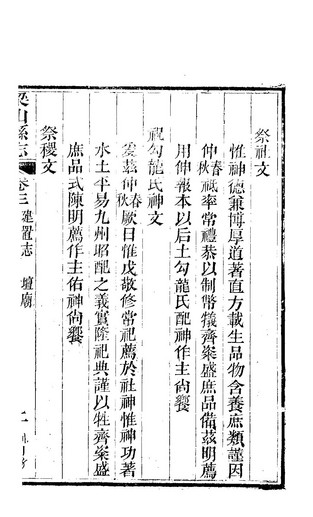 祭社文
惟神德兼博厚道著直方載生品物含養庶類謹因
仲春秋祗率常禮恭以制幣犧齊粢盛庶品備茲明薦
用伸報本以后土勾龍氏配神作主尚饗
祝勾龍氏神文
爰茲仲春秋厥日惟戊敬修常祀薦於社神惟神功著
水土平易九州昭配之義實隆祀典謹以牲齊粢盛
庶品式陳明薦作主佑神尚饗
祭稷文
梁山縣志 卷三 建置志 壇廟